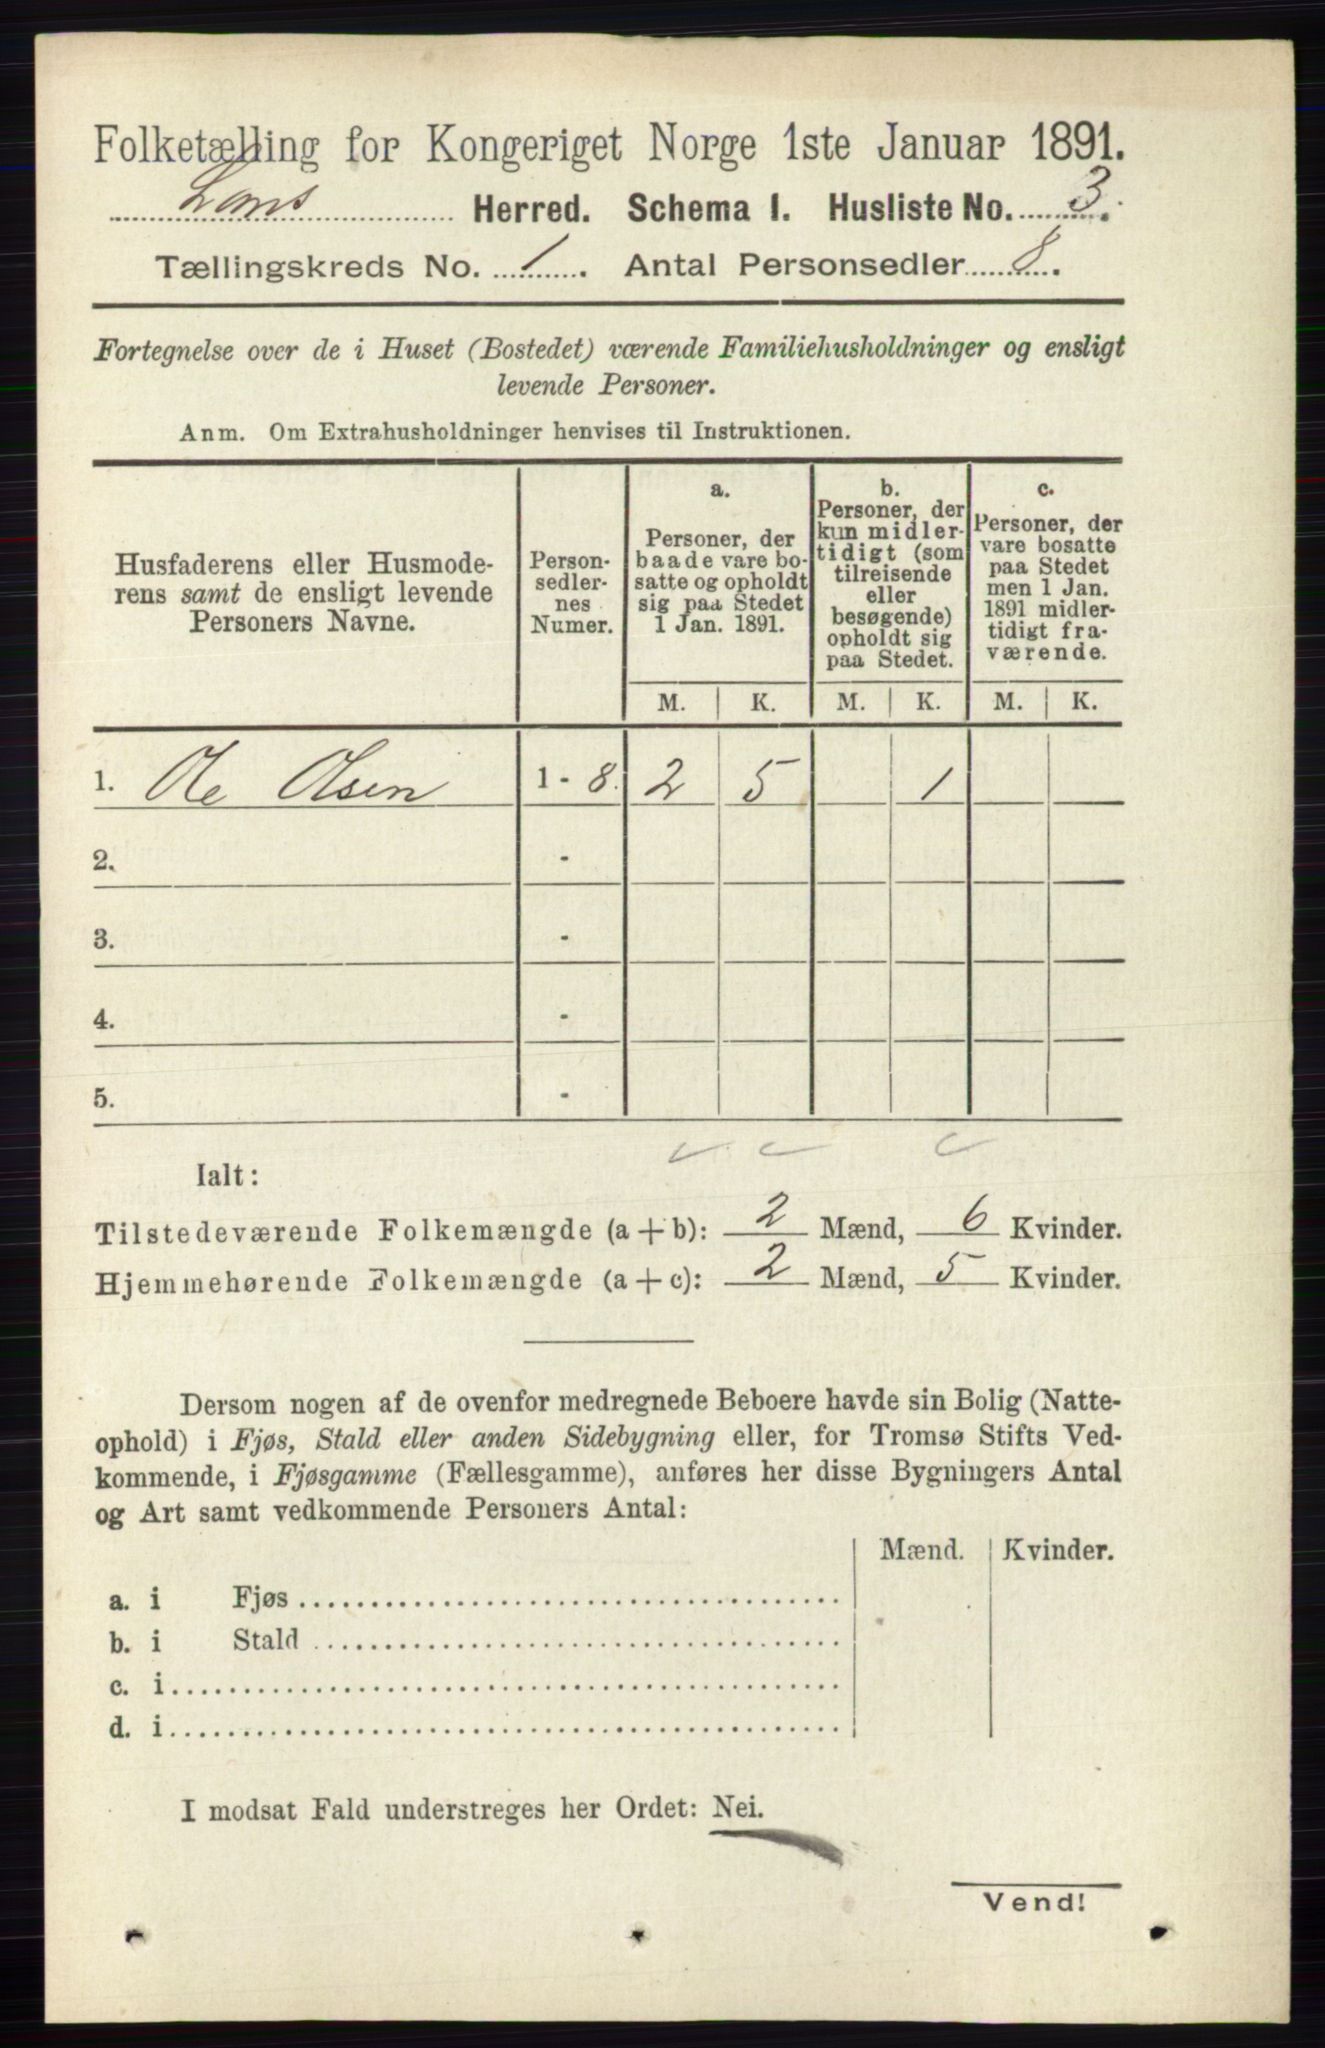 Folketælling for Kongeriget Norge 1ste Januar 1891.
Herred. Schema I. Husliste No. 3.
Tællingskreds No. 1. Antal Personsedler 8.
Fortegnelse over de i Huset (Bostedet) værende Familiehusholdninger og ensligt
levende Personer.
Anm. Om Extrahusholdninger henvises til Instruktionen.
Husfaderens eller Husmode-
rens samt de ensligt levende
Personers Navne.
Person-
sedler-
nes
Numer.
a.
Personer, der
baade vare bo-
satte og opholdt
sig paa Stedet
1 Jan. 1891.
b.
Personer, der
kun midler-
tidigt (som
tilreisende
eller
besøgende)
opholdt sig
paa Stedet.
c.
Personer, der
vare bosatte
paa Stedet
men 1 Jan.
1891 midler-
tidigt fra-
værende.
M. K. M. K. M. K.
1. Ole Olsen 1 - 8. 2 5 1
2. -
3. -
4. -
5. -
Ialt:
Tilstedeværende Folkemængde (a + b): 2 Mænd, 6 Kvinder.
Hjemmehørende Folkemængde (a + c): 2 Mænd, 5 Kvinder.
Dersom nogen af de ovenfor medregnede Beboere havde sin Bolig (Natte-
ophold) i Fjøs, Stald eller anden Sidebygning eller, for Tromsø Stifts Ved-
kommende, i Fjøsgamme (Fællesgamme), anføres her disse Bygningers Antal
og Art samt vedkommende Personers Antal:
Mænd. Kvinder.
a. i Fjøs
b. i Stald
c. i
d. i
I modsat Fald understreges her Ordet: Nei.
Vend!